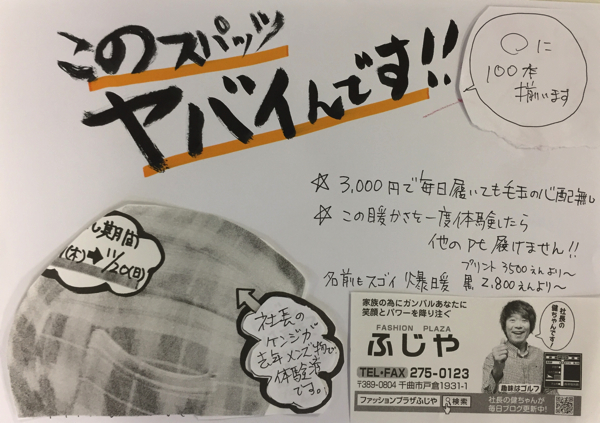 このスパッツ
ヤバイんです!!
〇に
100本
揃います
☆ 3,000円で毎日履いても毛玉の心配無し
☆ この暖かさを一度体験したら
他のPt履けません!!
プリント3500えんより〜
名前もスゴイ 爆暖 黒2,800えんより〜
し期間
(木)➡11/20(日)
社長の
ケンジが
去年メンズ物で
体験済
です。
家族の為にガンバルあなたに
笑顔とパワーを降り注ぐ
FASHION PLAZA
ふじや
TEL・FAX 275-0123
〒389-0804 千曲市戸倉1931-1
ファッションプラザふじや 検索
社長の
健ちゃん
です!
趣味はゴルフ
社長の健ちゃんが
毎日ブログ更新中!